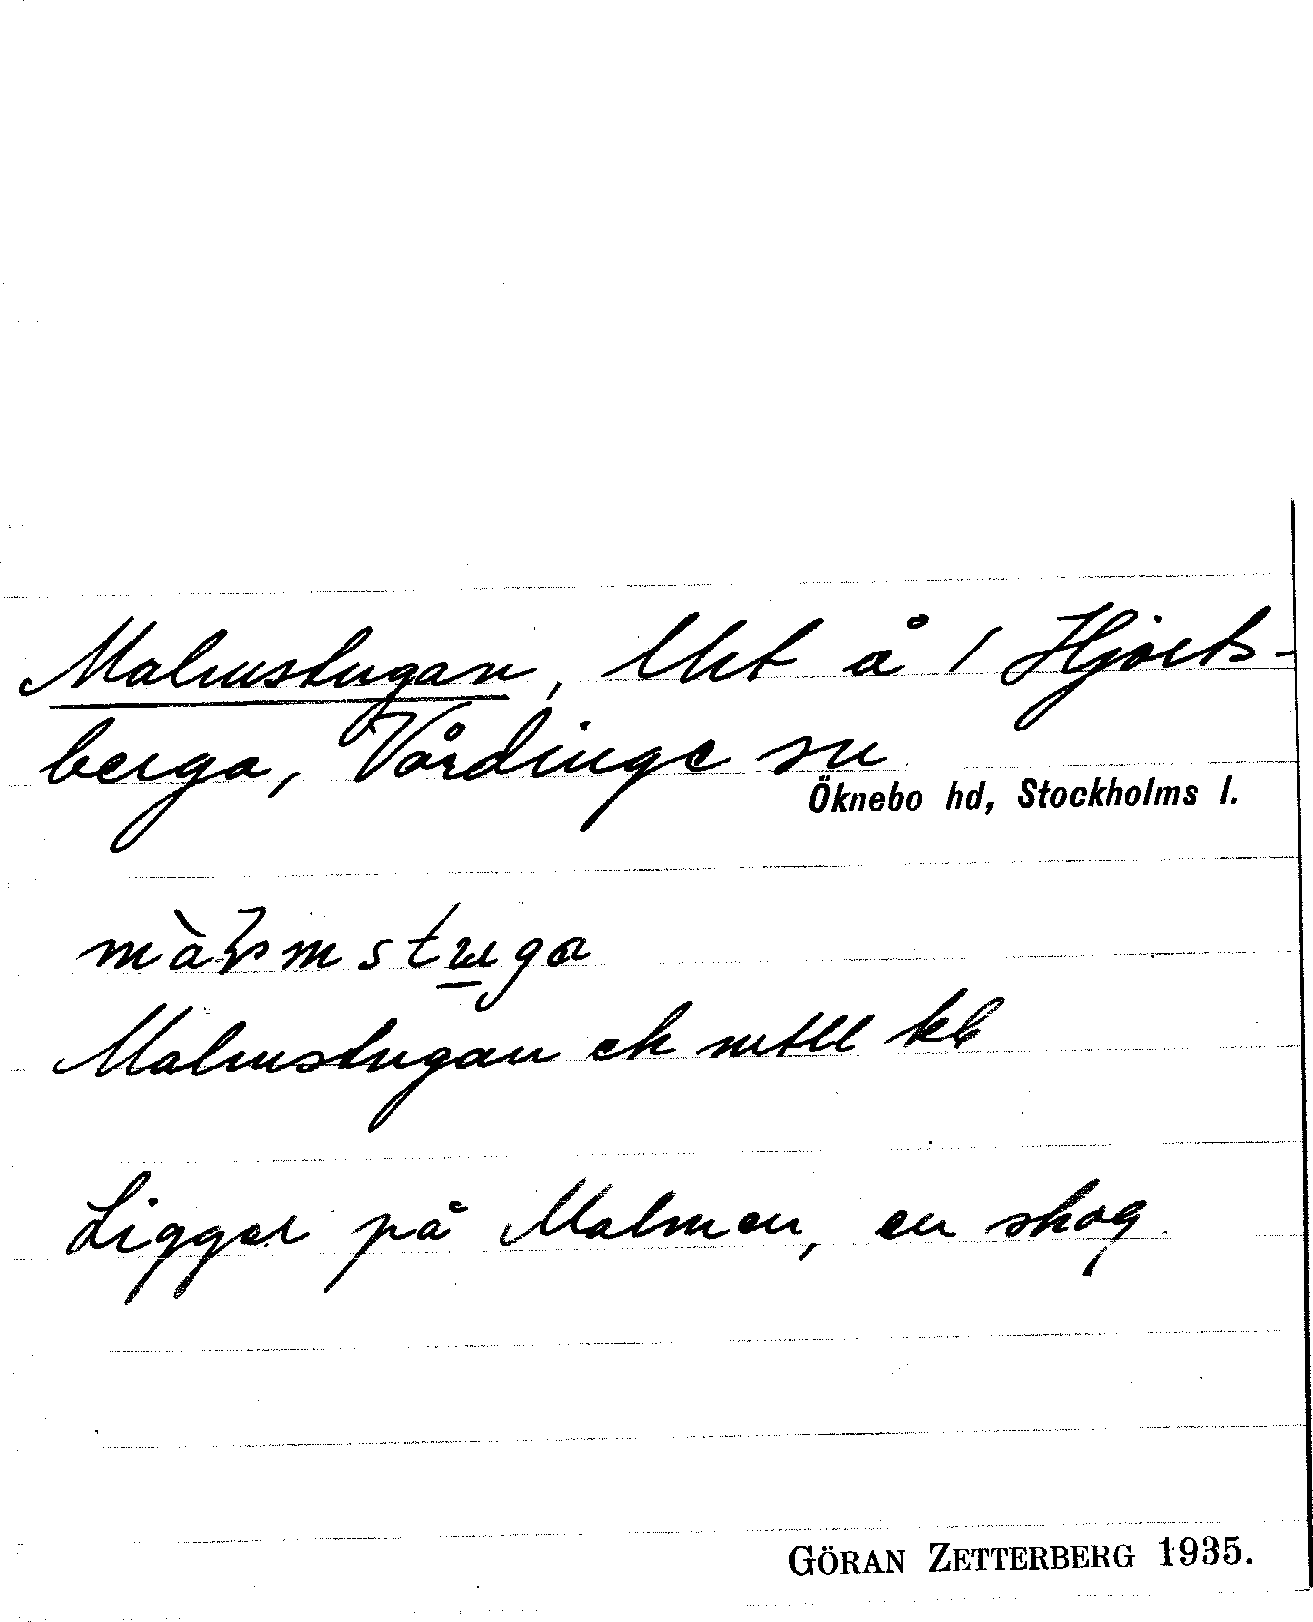 Malmstugan, lht å 1 Hjorts-
berga, Vårdinge sn
Öknebo hd, Stockholms l.
Malmstugan ek
Ligger på Malmen, en skog
GÖRAN ZETTERBERG 1935.